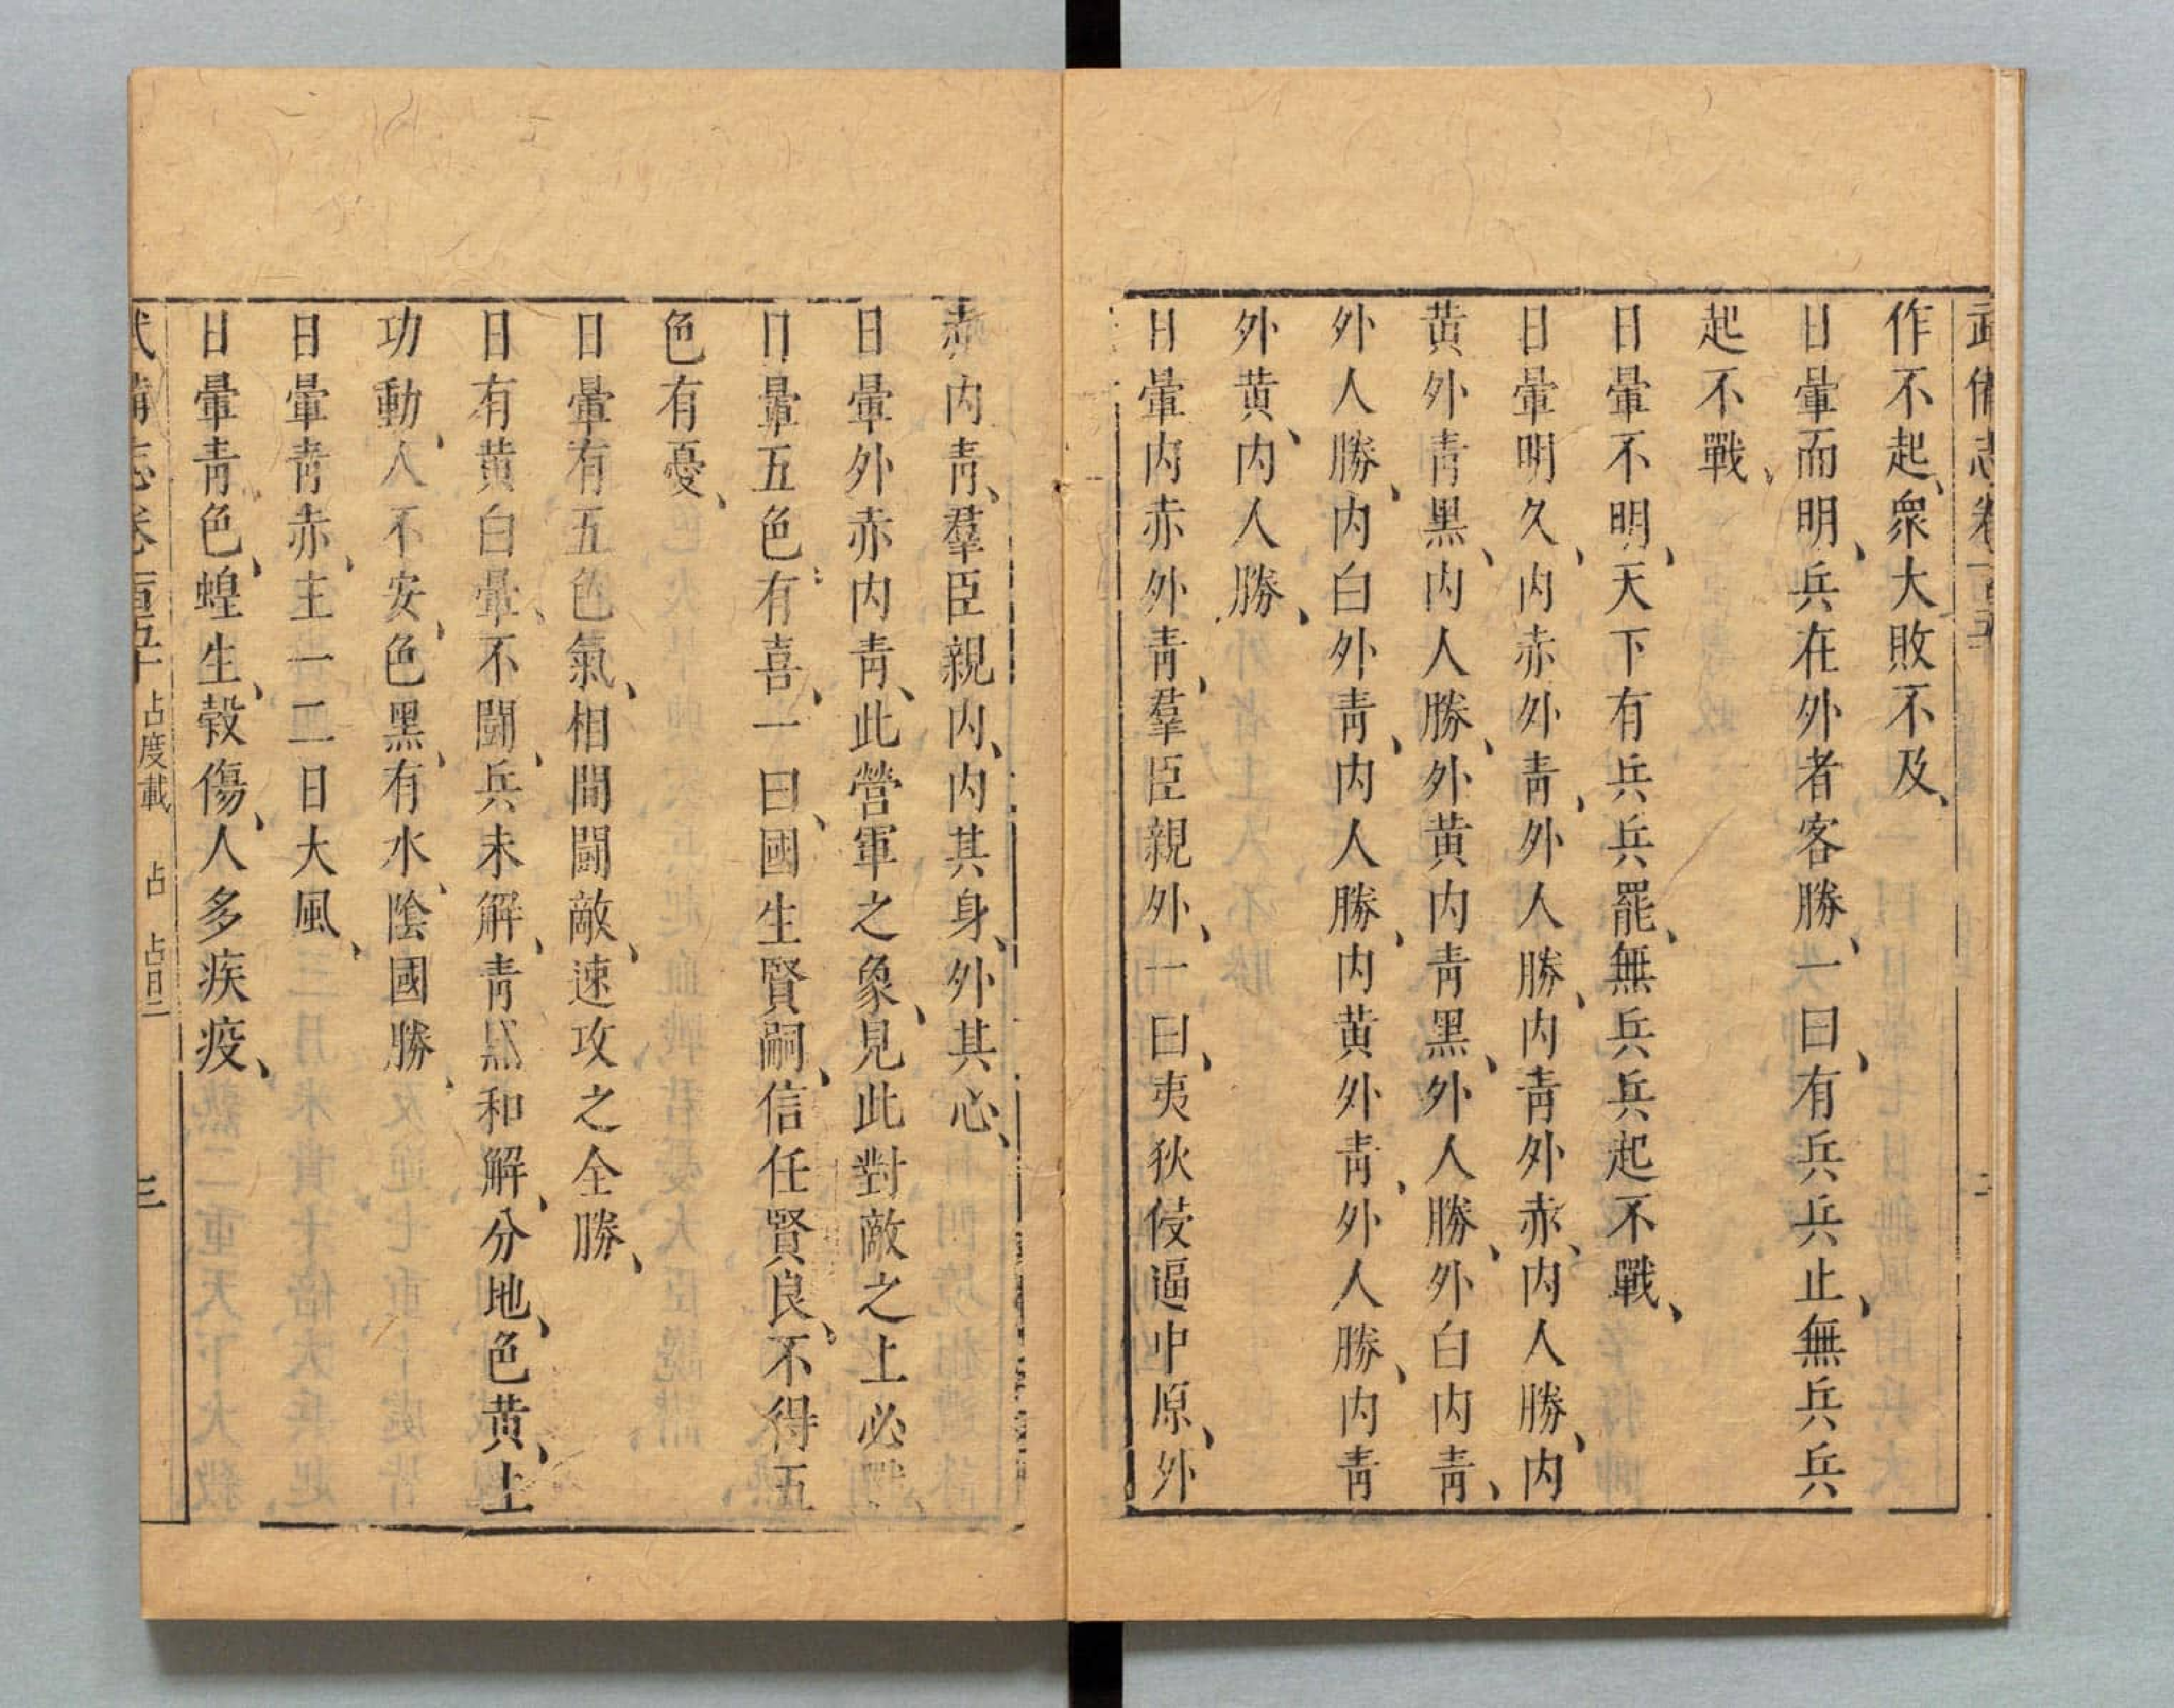 武備志卷一百五十
二
作不起、衆大敗不及、
日暈而明、兵在外者客勝、一曰、有兵兵止、無兵兵
起不戰、
日暈不明、天下有兵兵罷、無兵兵起不戰、
日暈明久、内赤外青、外人勝、内青外赤、内人勝、内
黄外青黑、内人勝、外黄内青黑、外人勝、外白内青、
外人勝、内白外青、内人勝、内黄外青、外人勝、内青
外黄、内人勝、
日暈内赤外青、羣臣親外、一曰、夷狄侵逼中原、外
赤内青、羣臣親内、内其身、外其心、
日暈外赤内青、此營軍之象、見此對敵之上必戰、
日暈五色、有喜、一曰、國生賢嗣、信任賢良、不得五
色有憂、
日暈有五色氣、相間鬪敵、速攻之全勝、
日有黄白暈、不鬪、兵未解、青黑和解、分地、色黄、土
功動、人不安、色黑、有水、陰國勝、
日暈青赤、主一二日大風、
日暈青色、蝗生、穀傷、人多疾疫、
武備志卷一百五十 占度載 占 占日二 三